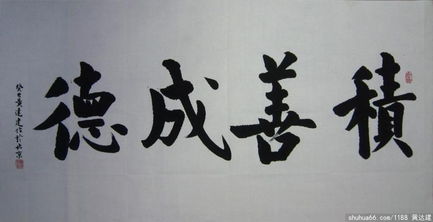 積善成德
癸巳黄達建书於北京
shuhua66.com/1188 黄达建